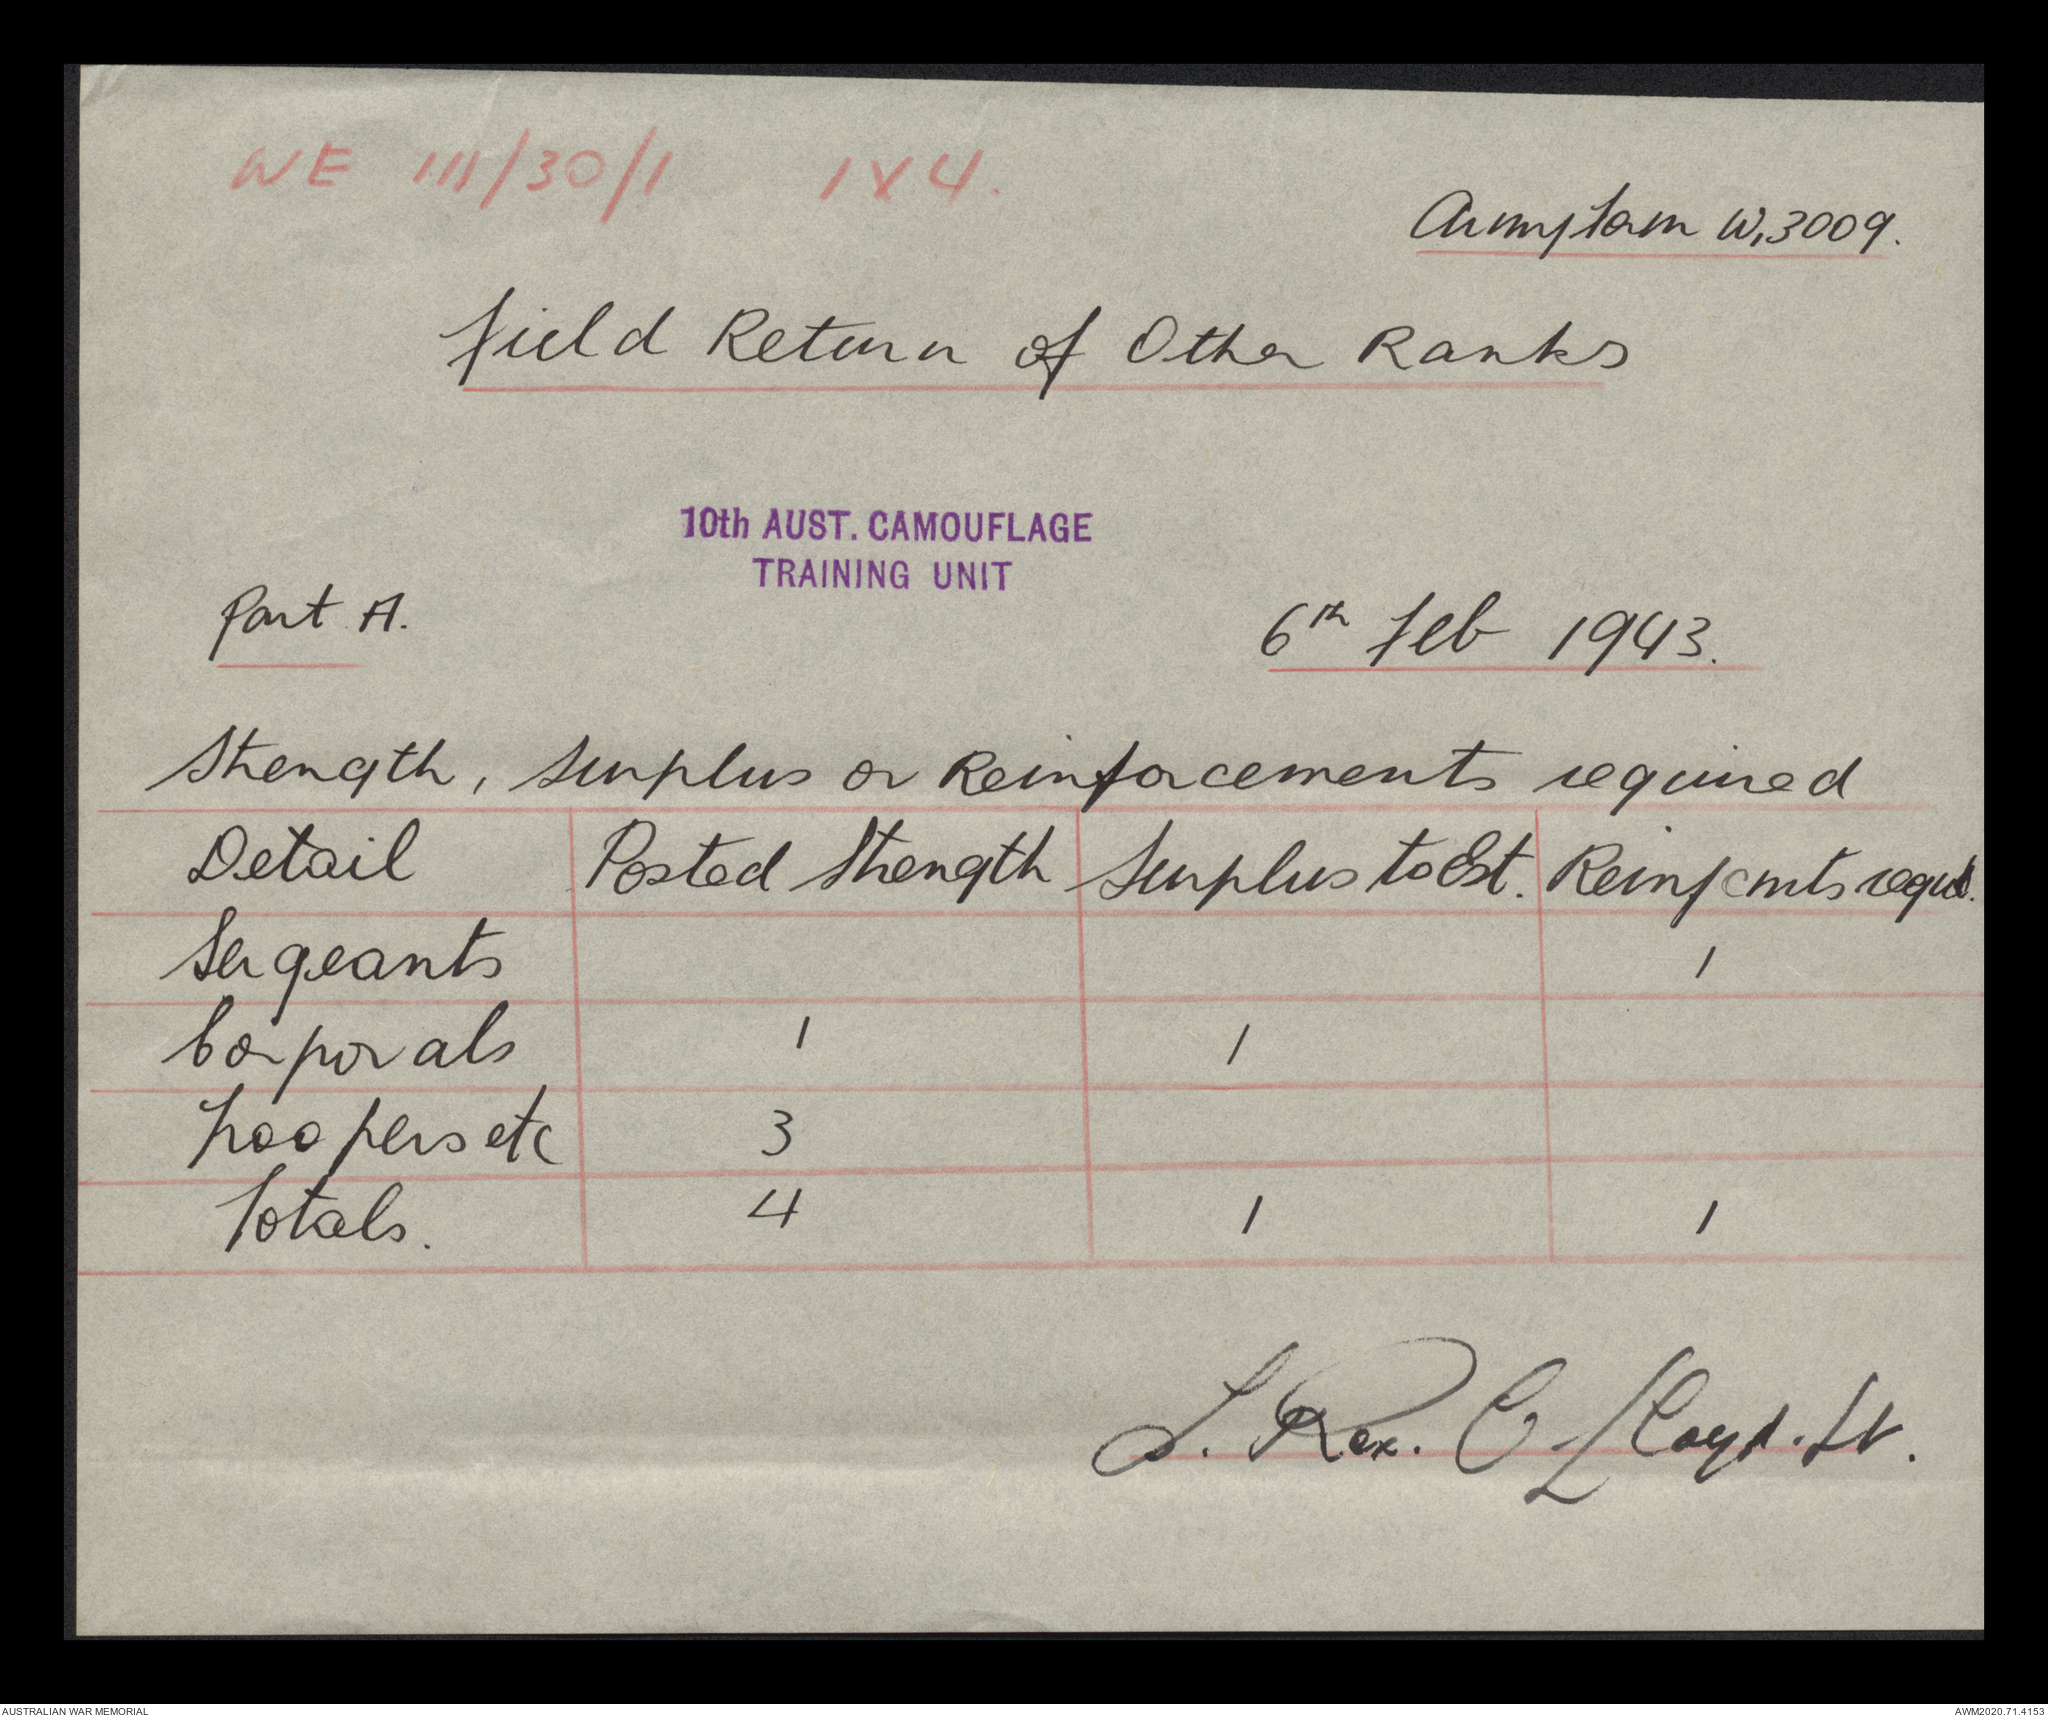 WE 111/30/1 1 X 4.
Army form W.3009.
Field Return of Other Ranks
10th AUST. CAMOUFLAGE
TRAINING UNIT
Part A.
6th Feb 1943.
Strength, Surplus or Reinforcements required
Detail Posted Strength Surplus to Est. Reinfcmts requd.
Sergeants 1
Corporals 1 1
Troopers etc 3
Totals. 4 1 1
S. Rex. C Lloyd. Lt.
AUSTRALIAN WAR MEMORIAL
AWM2020.71.4153